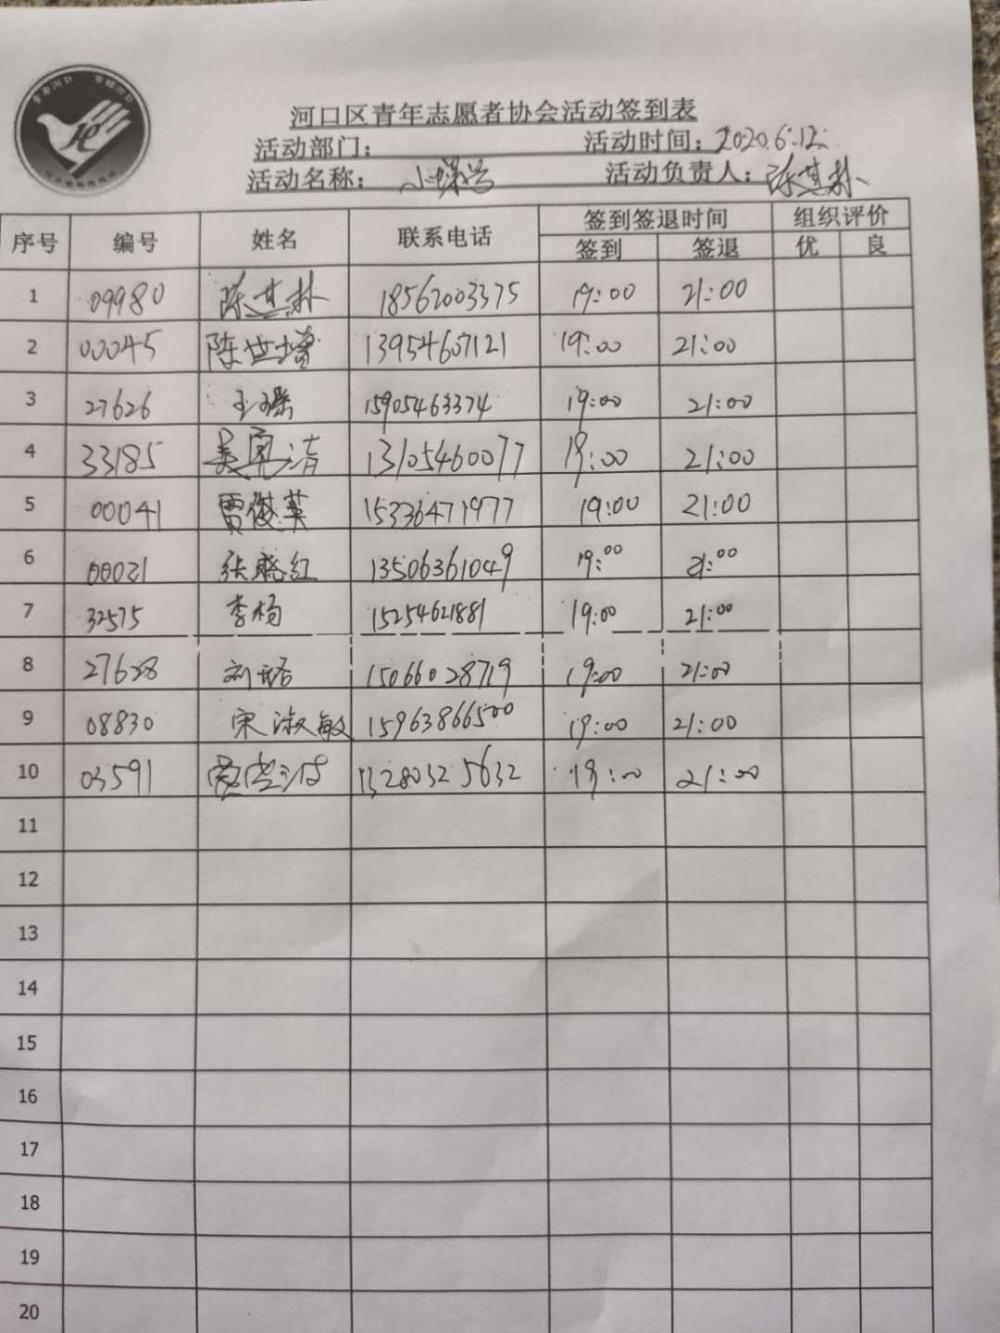 河口区青年志愿者协会活动签到表
活动部门： 活动时间：2020.6.12.
活动名称： 活动负责人：陈其朴
序号 编号 姓名 联系电话 签到签退时间 组织评价
签到 签退 优 良
1 09980 陈其朴 18562003375 19:00 21:00
2 00045 陈世增 13954607121 19:00 21:00
3 27626 15905463374 19:00 21:00
4 33185 13105460077 19:00 21:00
5 00041 贾俊英 15336471977 19:00 21:00
6 00021 张晓红 13506361049 19:00 21:00
7 32575 李杨 15254621881 19:00 21:00
8 27628 15066028719 19:00 21:00
9 08830 宋淑敏 15963866500 19:00 21:00
10 03591 13280325632 19:00 21:00
11
12
13
14
15
16
17
18
19
20